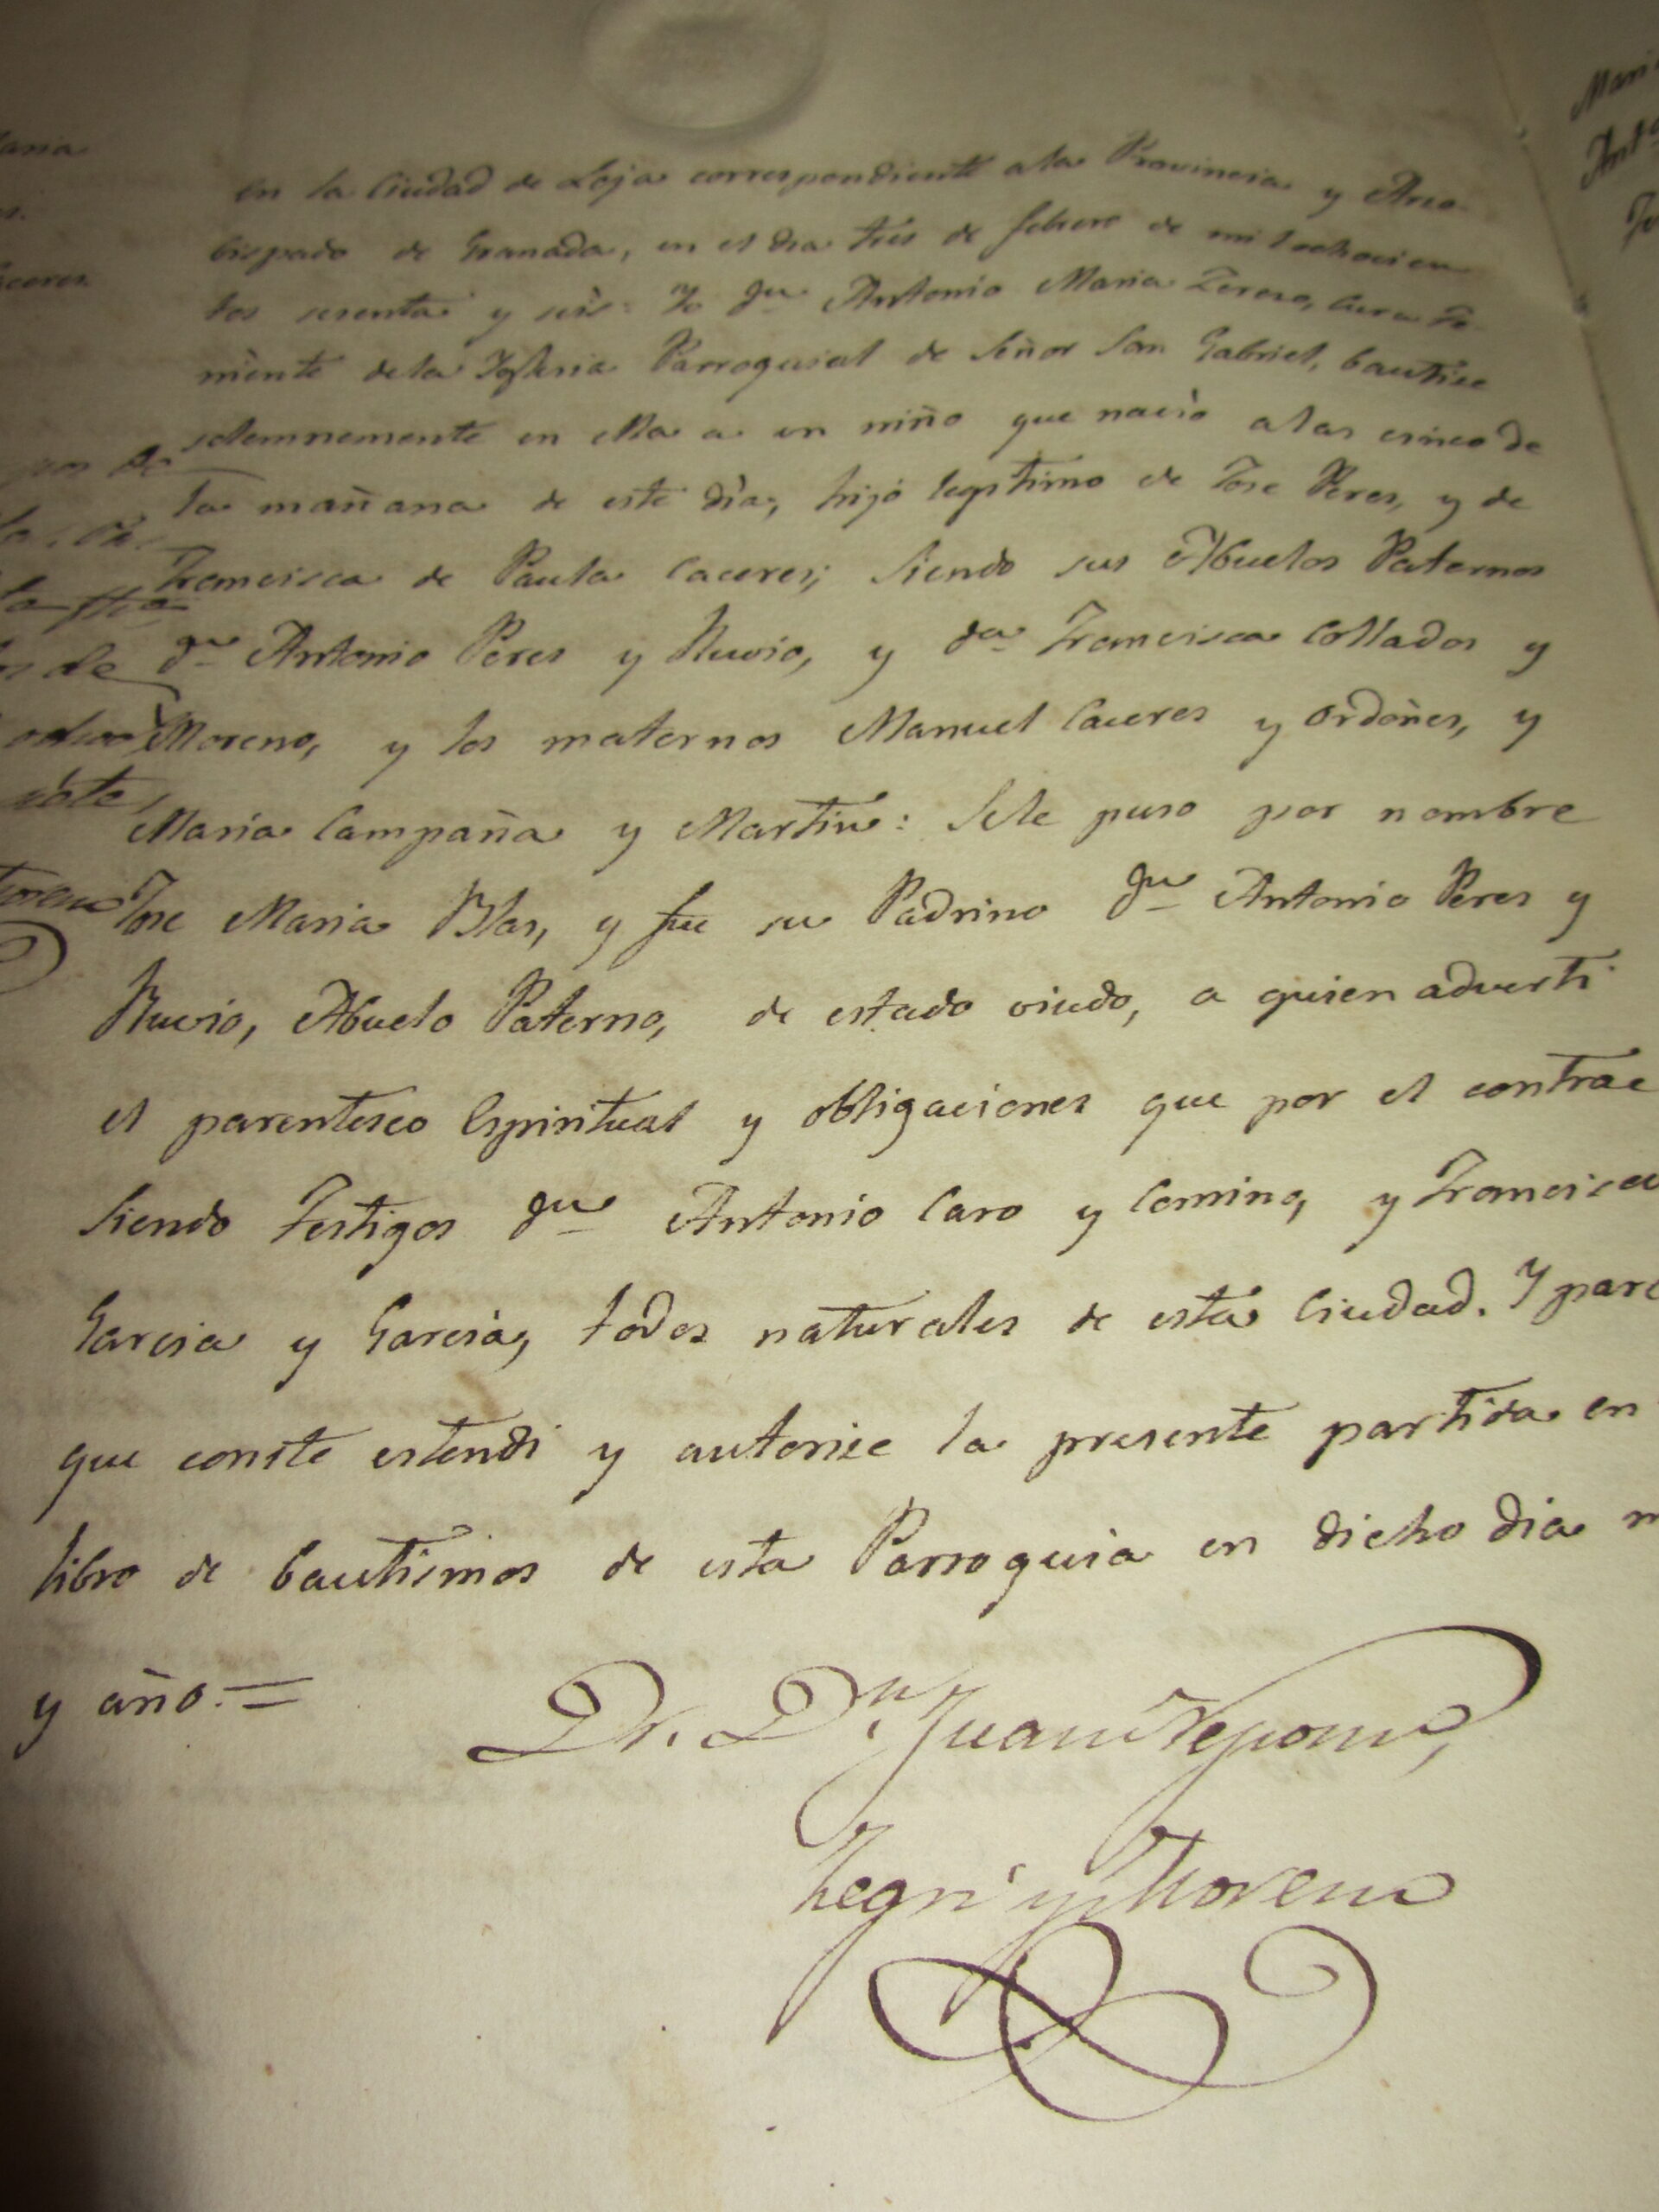 en la Ciudad de Loja correspondiente a la Provincia y Arzo
bispado de Granada, en el dia tres de febrero de mil ochocien
tos sesenta y seis: Yo Dn Antonio Maria Cerezo, Cura Te
niente dela Yglesia Parroquial de Señor San Gabriel, bautise
solemnemente en ella a un niño que naciò alas cinco de
la mañana de este dia, hijo legitimo de Jose Peres, y de
Francisca de Paula Caceres; Siendo sus Abuelos Paternos
Dn Antonio Peres y Ruvio, y Da Francisca Collados y
Moreno, y los maternos Manuel Caceres y Ordoñes, y
Maria Campaña y Martin: Sele puso por nombre
Jose Maria Blas, y fue su Padrino Dn Antonio Peres y
Ruvio, Abuelo Paterno, de estado viudo, a quien adverti
el parentesco Espiritual y obligaciones que por el contrae
Siendo Testigos Dn Antonio Caro y Comino, y Francisco
Garcia y Garcia, todos naturales de esta Ciudad. Y para
que conste estendi y autorice la presente partida en
libro de bautismos de esta Parroquia en dicho dia m
y año.=
Dr. Dn Juan Nepomo
Zegri y Moreno